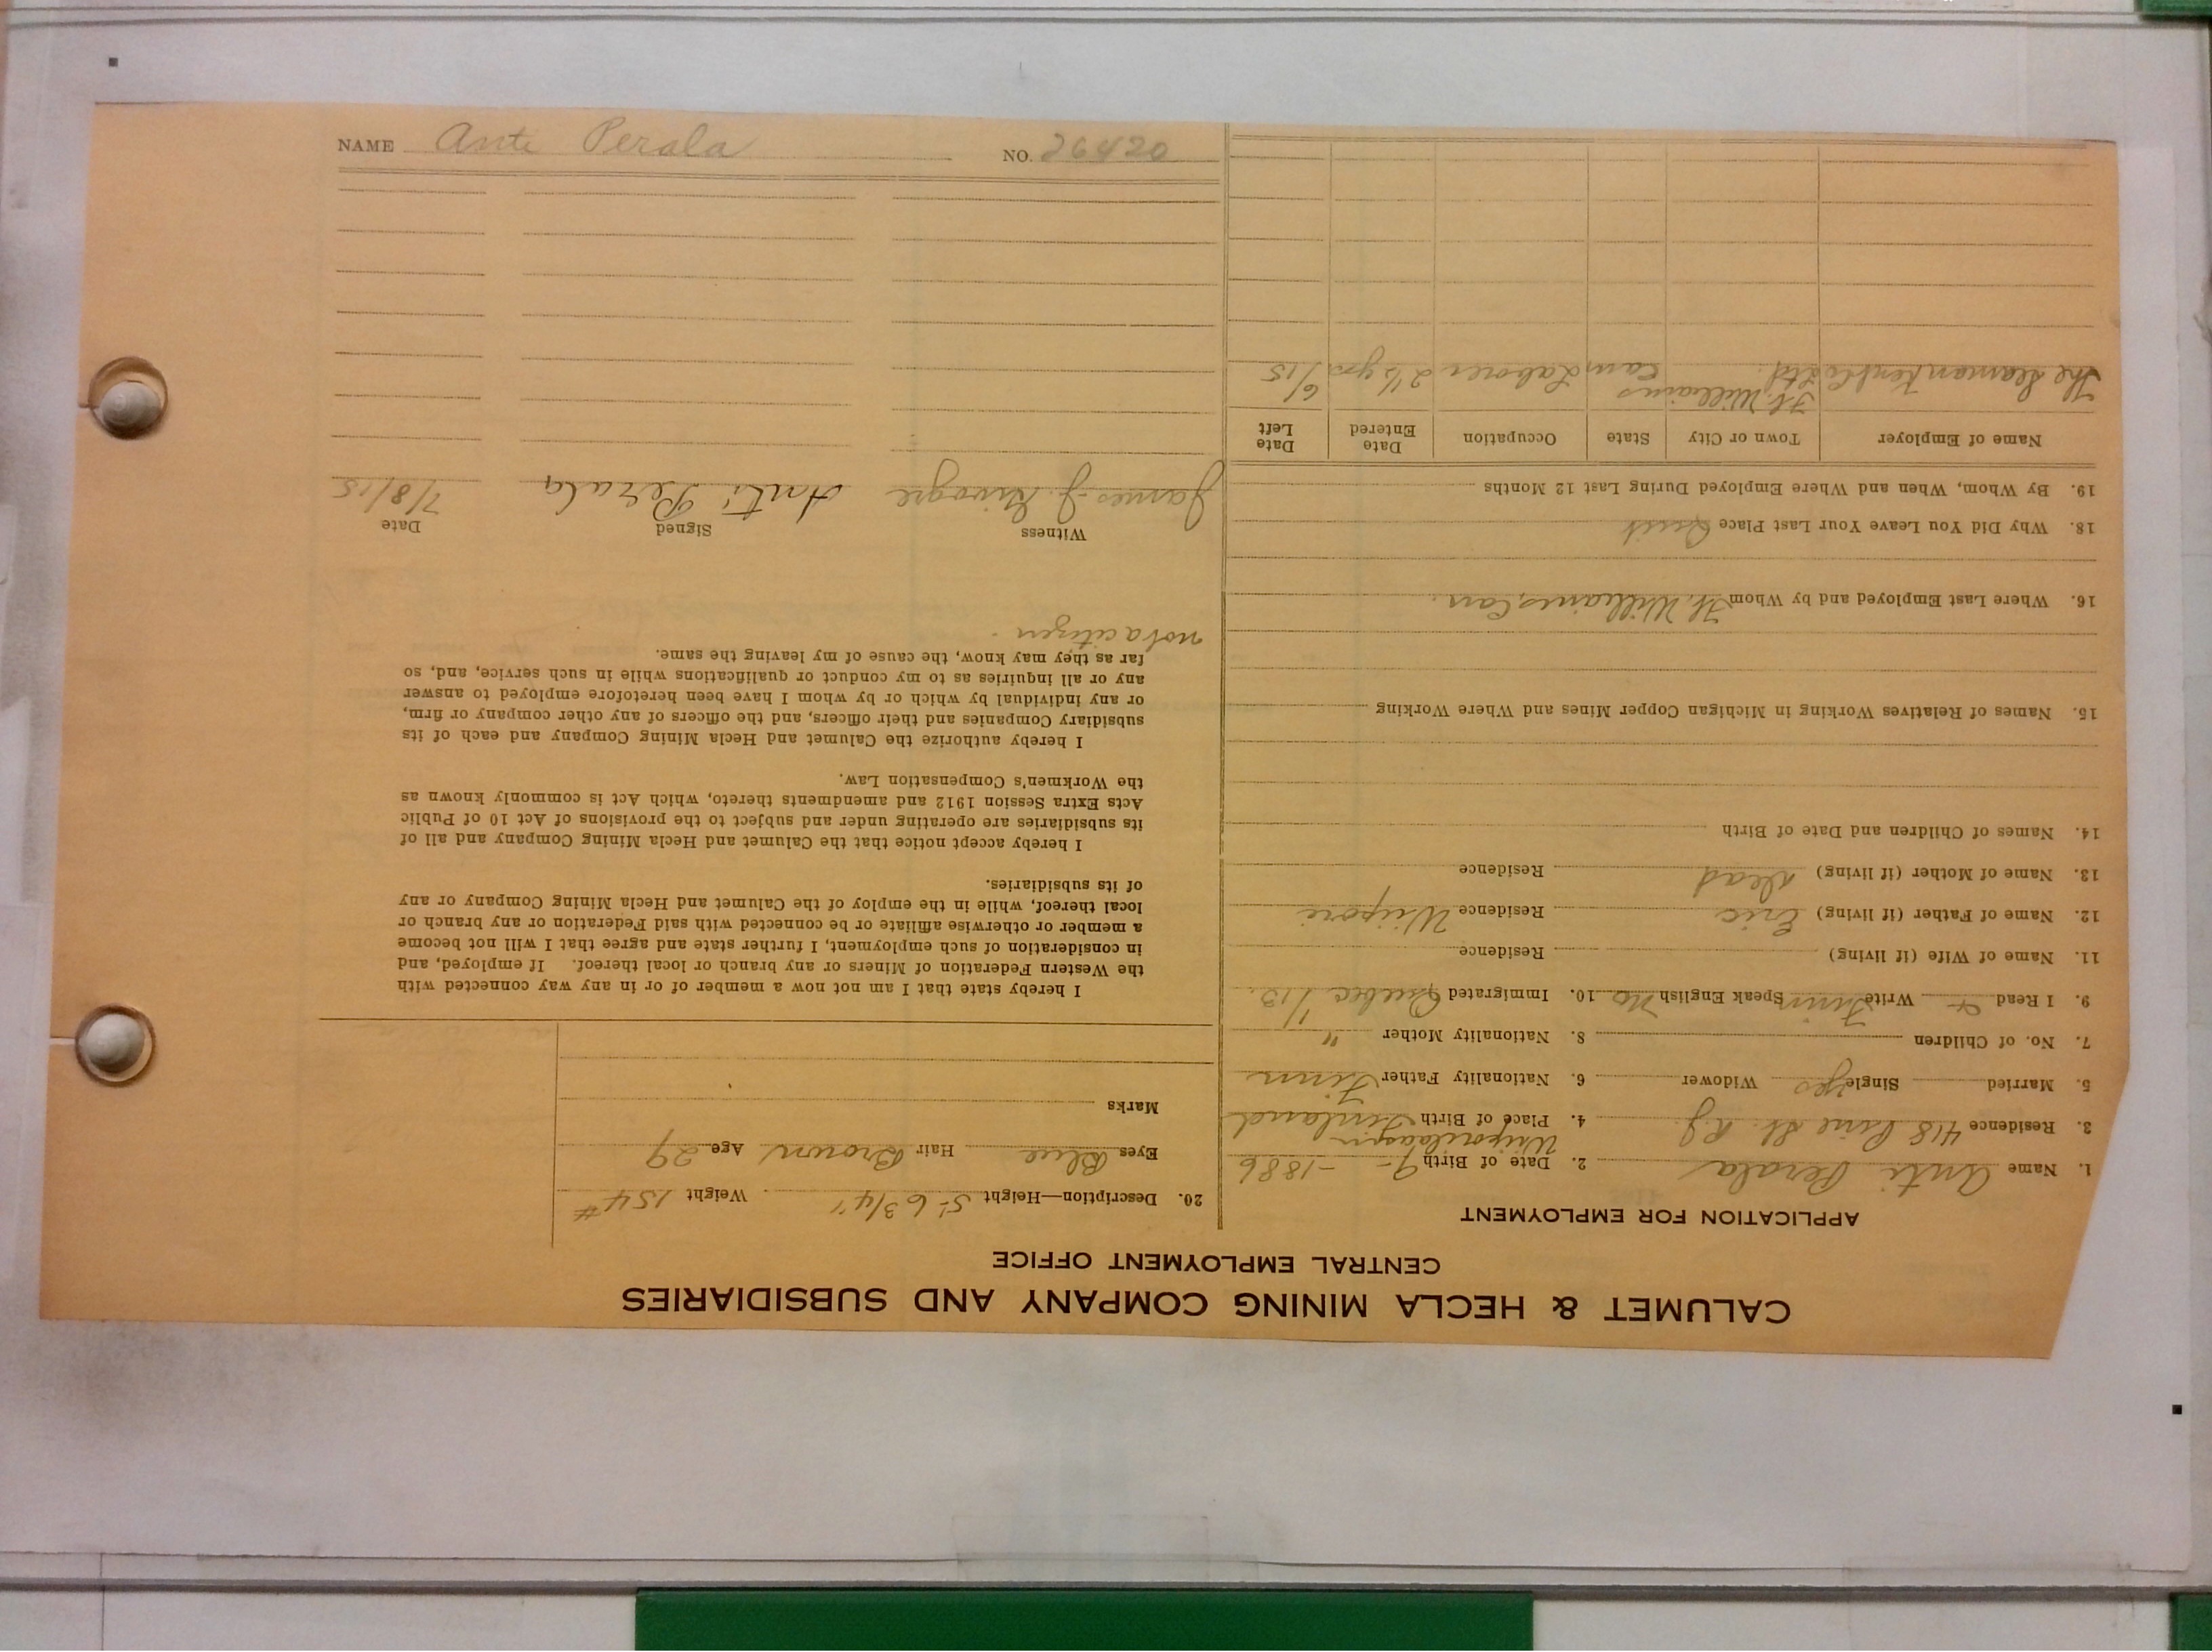 NAME Ante Perala NO. 26420
CALUMET & HECLA MINING COMPANY AND SUBSIDIARIES
CENTRAL EMPLOYMENT OFFICE
APPLICATION FOR EMPLOYMENT
1. Name Anti Perala 2. Date of Birth 9- -1886
3. Residence 418 Pine St. R.J. 4. Place of Birth Finland
5. Married Single yes Widower 6. Nationality Father Finn
7. No. of Children 8. Nationality Mother "
9. I Read & Write Finn Speak English No 10. Immigrated Quebec 1/13.
11. Name of Wife (if living) Residence
12. Name of Father (if living) Eric Residence
13. Name of Mother (if living) Dead Residence
14. Names of Children and Date of Birth
15. Names of Relatives Working in Michigan Copper Mines and Where Working
16. Where Last Employed and by Whom Ft. Williams, Can.
18. Why Did You Leave Your Last Place Quit
19. By Whom, When and Where Employed During Last 12 Months
Name of Employer Town or City State Occupation Date Entered Date Left
The Seaman Kent Co Ltd. Ft. Williams Can Laborer 2 1/2 yrs 6/15
20. Description—Height 5'-6 3/4" Weight 154#
Eyes Blue Hair Brown Age 29
Marks
I hereby state that I am not now a member of or in any way connected with
the Western Federation of Miners or any branch or local thereof. If employed, and
in consideration of such employment, I further state and agree that I will not become
a member or otherwise affiliate or be connected with said Federation or any branch or
local thereof, while in the employ of the Calumet and Hecla Mining Company or any
of its subsidiaries.
I hereby accept notice that the Calumet and Hecla Mining Company and all of
its subsidiaries are operating under and subject to the provisions of Act 10 of Public
Acts Extra Session 1912 and amendments thereto, which Act is commonly known as
the Workmen's Compensation Law.
I hereby authorize the Calumet and Hecla Mining Company and each of its
subsidiary Companies and their officers, and the officers of any other company or firm,
or any individual by which or by whom I have been heretofore employed to answer
any or all inquiries as to my conduct or qualifications while in such service, and, so
far as they may know, the cause of my leaving the same.
not a citizen.
Witness Signed Date
James J. Anti Perala 7/8/15